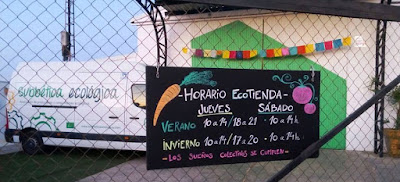 subbética ecológica
HORARIO ECOTIENDA
JUEVES SÁBADO
VERANO 10 a 14/18 a 21 - 10 a 14h
INVIERNO 10 a 14/17 a 20 - 10 a 14h
-LOS SUEÑOS COLECTIVOS SE CUMPLEN-